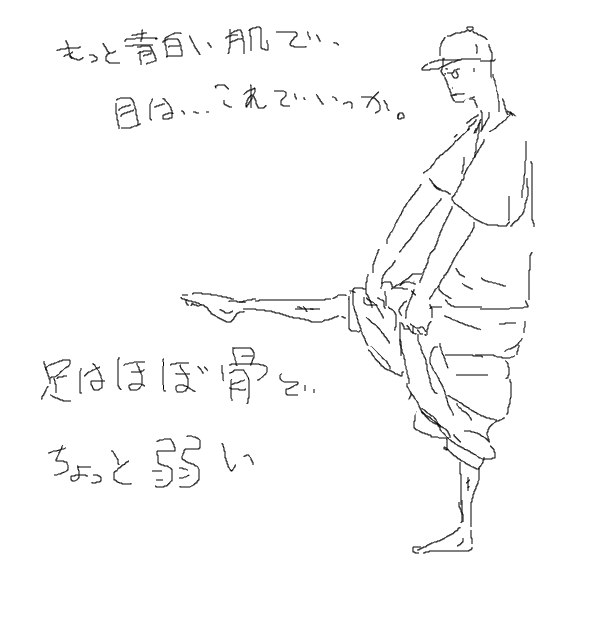 もっと青白い肌で、
目は…これでいっか。
足はほぼ骨で、
ちょっと弱い